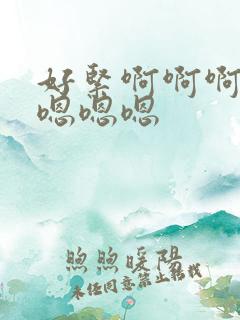 好紧啊啊啊
嗯嗯嗯
煦煦暖阳
未经同意禁止转载